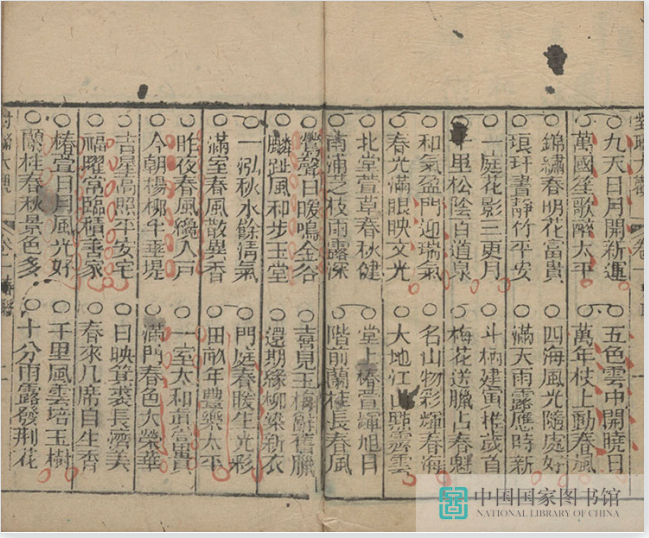 對聯大觀 卷一
九天日月開新運 五色雲中開曉日
萬國笙歌醉太平 萬年杖上動春風
錦繡春明花富貴 四海風光隨處好
琅玕書靜竹平安 滿天雨露應時新
一庭花影三更月 斗柄建寅推歲首
千里松陰百道泉 梅花送臘占春魁
和氣盈門迎瑞氣 名山物彩輝春海
春光滿眼映文光 大地江山
北堂萱草春秋健 堂上椿萱輝旭日
南浦之枝雨露深 階前蘭桂長春風
鶯聲日暖鳴金谷 喜見玉梅辭舊臘
麟趾風和步玉堂 還期綠柳染新衣
一泓秋水餘清氣 門庭春暖生光彩
滿室春風散異香 田畝年豐樂太平
昨夜春風纔入戶 一室太和真富貴
今朝楊柳半垂堤 滿門春色大榮華
吉星高照平安宅 日映箕裘長濟美
福曜常臨積善家 春來几席自生香
椿萱日月風光好 千里風雲培玉樹
蘭桂春秋景色多 十分雨露發荆花
對聯大觀 卷一
中国国家图书馆
NATIONAL LIBRARY OF CHINA